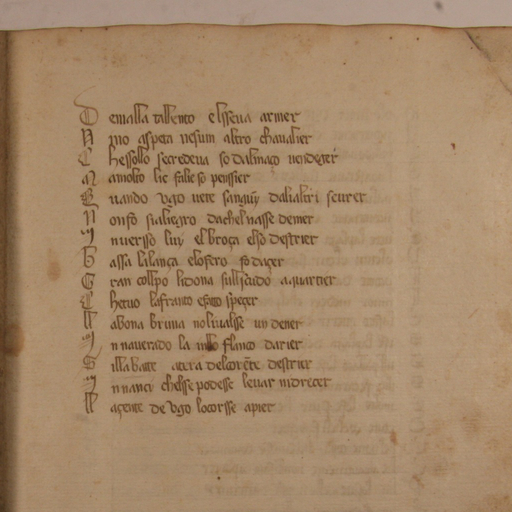 D emalla tallento elsseva armer
N uio aspeta nesum altro chavalier
C hessollo secredeva so dalmaço vendeger
M amolto lie falie so penssier
Q uando vgo vete sanguin daliabiri seurer
N onso sialiegro dachel nasse de mer
I nversso luy el broça elso destrier
b assa lalança elofero so daçer
G ran collpo lidona sullscudo a quartier
C hetuo lafranto e speçer
ll abona bruna noli valsse un dener
I nnaverado la inllo flanco darier
S illa bate atera delcorente destrier
I nnanci chelsse podesse levar indreçer
ll açente de vgo locorsse apier